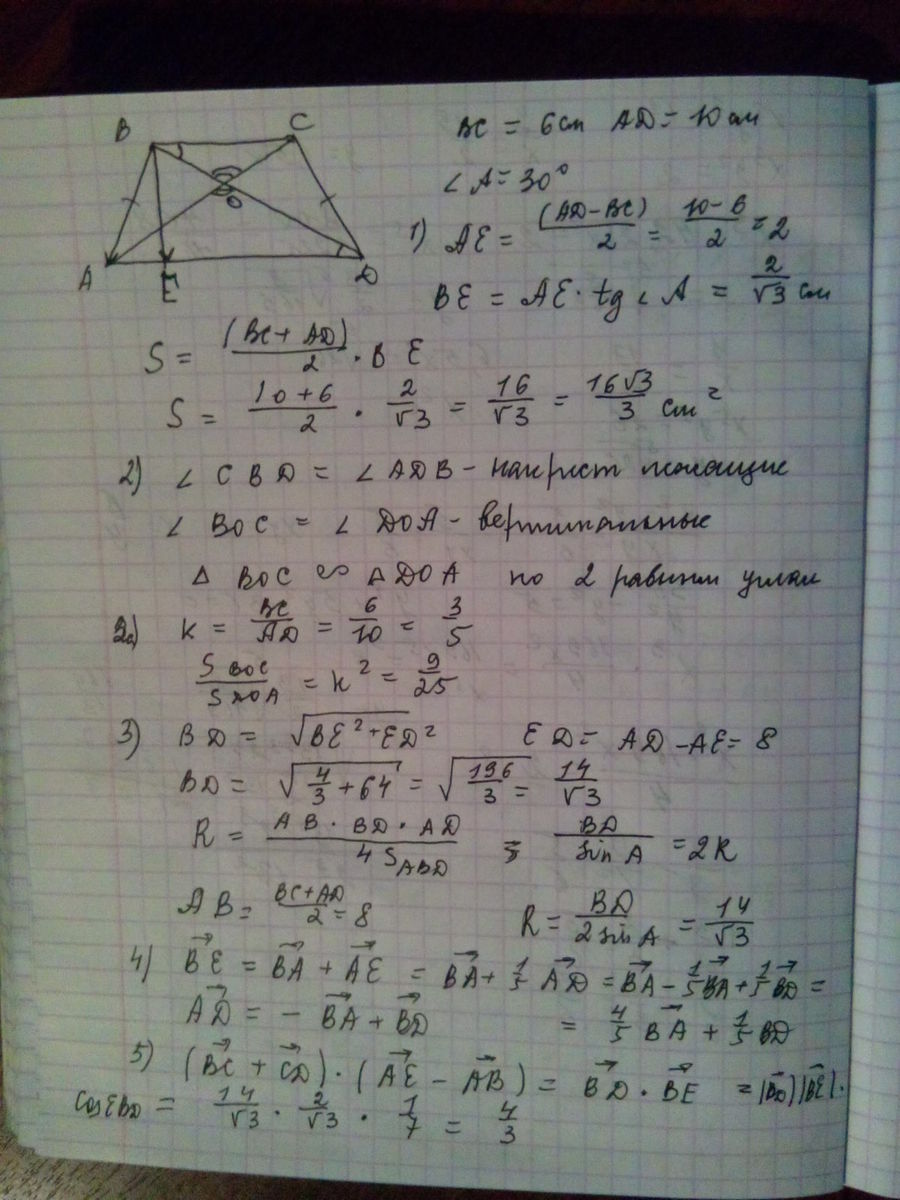 B C
BC = 6см AD = 10см
∠A = 30°
O
A E D
1) AE = (AD-BC)/2 = 10-6/2 = 2
BE = AE · tg ∠A = 2/√3 см
S = (BC+AD)/2 · BE
S = 10+6/2 · 2/√3 = 16/√3 = 16√3/3 см²
2) ∠CBD = ∠ADB - накрест лежащие
∠BOC = ∠DOA - вертикальные
Δ BOC ∾ ΔDOA по 2 равным углам
2а) k = BC/AD = 6/10 = 3/5
S BOC/S DOA = k² = 9/25
3) BD = √BE²+ED² ED = AD - AE = 8
BD = √4/3+64 = √196/3 = 14/√3
R = AB · BD · AD/4 S ABD = BD/sin A = 2R
AB = BC+AD/2 = 8 R = BD/2 sin A = 14/√3
4) BE = BA + AE = BA + 1/5 AD = BA - 1/5 BA + 1/5 BD =
AD = - BA + BD = 4/5 BA + 1/5 BD
5) (BC + CD) · (AE - AB) = BD · BE = |BD||BE|·
cos EBD = 14/√3 · 2/√3 · 1/7 = 4/3